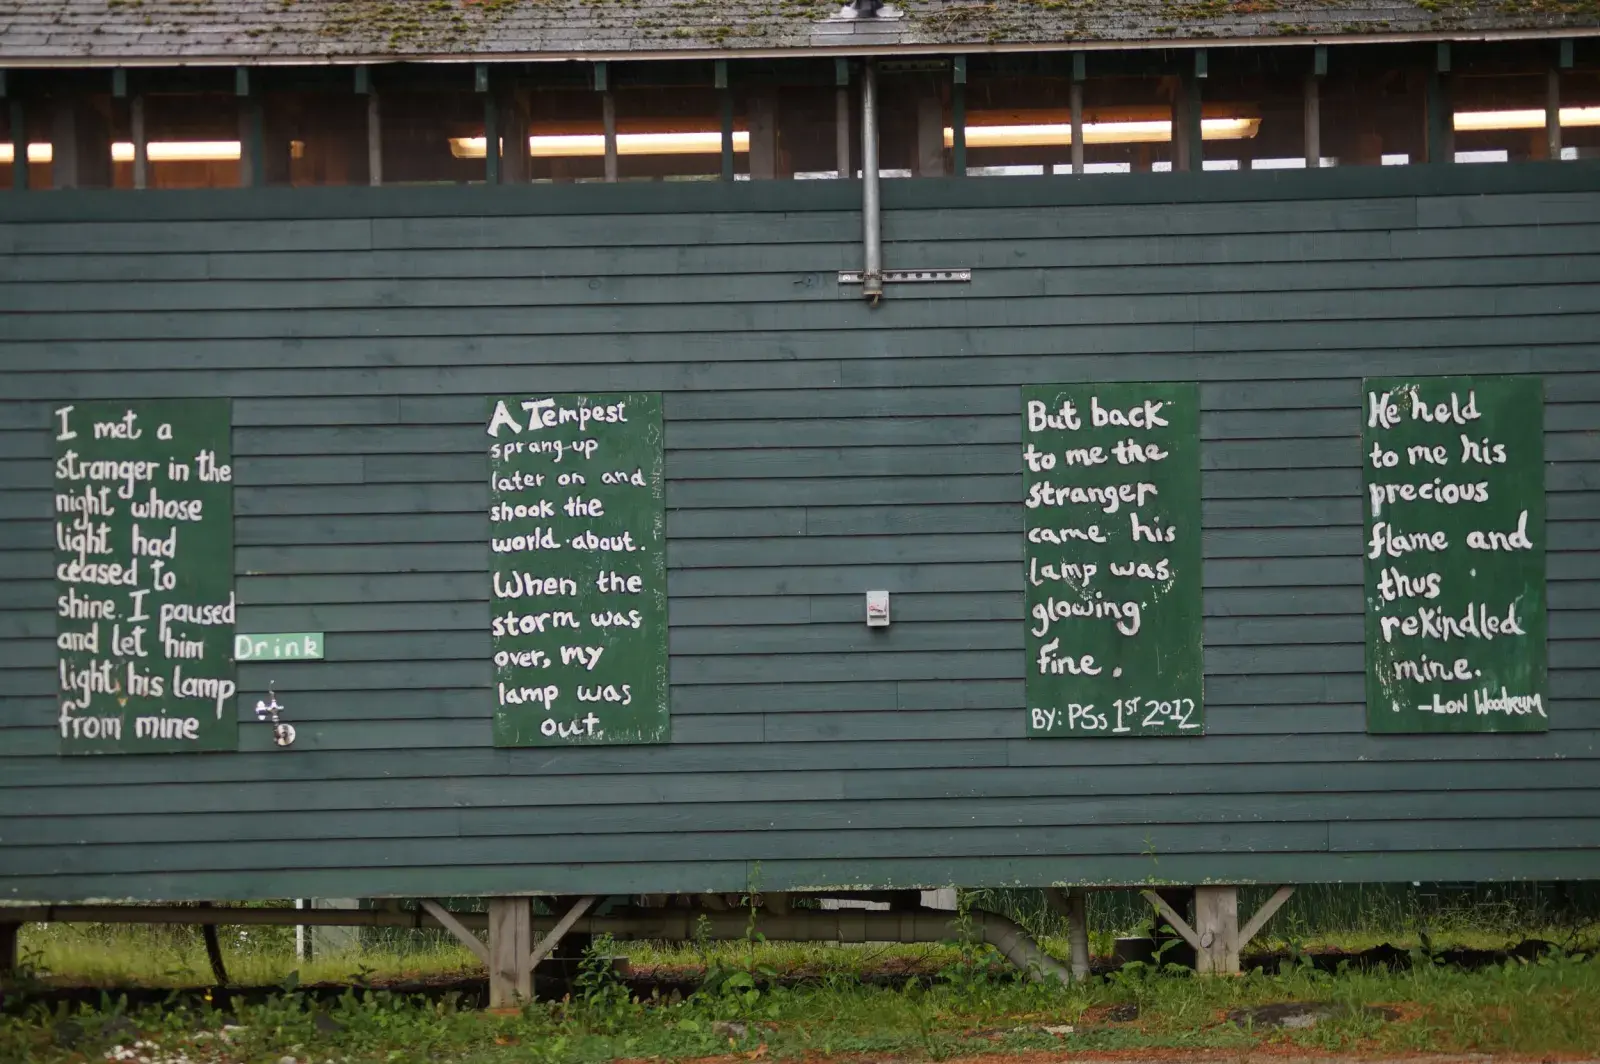 I met a
stranger in the
night whose
light had
ceased to
shine. I paused
and let him
light his lamp
from mine
Drink
A Tempest
sprang up
later on and
shook the
world about.
When the
storm was
over, my
lamp was
out.
But back
to me the
stranger
came his
lamp was
glowing
fine.
BY: PSs 1st 2012
He held
to me his
precious
flame and
thus
rekindled
mine.
-Lon Woodrum